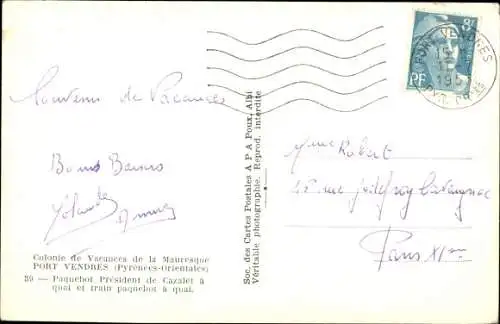 8F
PORT VENDRES
15
195
PYR. ORles
RF
Souvenir de Vacances
Bons Baisers
Yolande
Mme Robert
45 rue Godefroy Cavaignac
Paris XIem
Colonie de Vacances de la Mauresque
PORT VENDRES (Pyrénées-Orientales)
39 — Paquebot Président de Cazalet à
quai et train paquebot à quai.
Soc. des Cartes Postales A P A Poux, Albi
Véritable photographie. Reprod. interdite